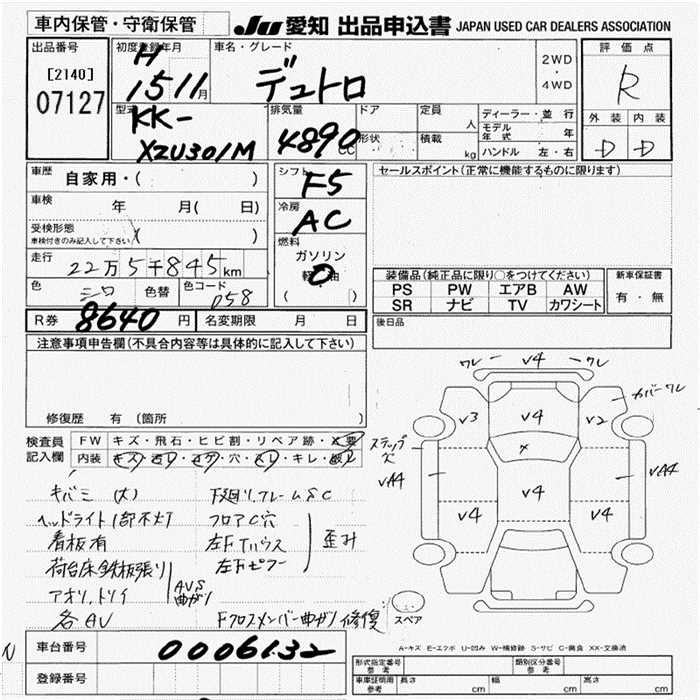 車内保管・守衛保管
JU 愛知 出品申込書 JAPAN USED CAR DEALERS ASSOCIATION
出品番号
[2140]
07127
初度登録年月
H
15 11月
車名・グレード
デュトロ
2WD
・
4WD
評価点
R
外装 内装
D D
型式
KK-
XZU301M
排気量
4890
cc
ドア
形状
定員
人
積載
kg
ディーラー・並行
モデル年式 年
ハンドル 左・右
車歴
自家用・( )
車検
年 月( 日)
受検形態
車検付きのみ記入して下さい( )
走行
22万5千845km
色
シロ
色替
色コード
058
シフト
F5
冷房
AC
燃料
ガソリン
軽油
( )
セールスポイント(正常に機能するものに限ります)
装備品(純正品に限り○をつけてください)
PS PW エアB AW
SR ナビ TV カワシート
新車保証書
有・無
R券 8640 円
名変期限 月 日
後日品
注意事項申告欄(不具合内容等は具体的に記入して下さい)
修復歴 有 (箇所
検査員
記入欄
FW キズ・飛石・ヒビ割・リペア跡・X要
内装 キズ・汚レ・コゲ・穴・スレ・キレ・破レ
キバミ(大)
ヘッドライト1部不灯
看板有
荷台床鉄板張り
アオリ、トリイ
AUS
曲がり
各AU
下廻り、フレームSC
フロアC穴
歪み
Fクロスメンバー曲がり修復
ワレ V4 ワレ
カバーワレ
V3 V4 V2
ステップ
穴
X
VA4 VA4
V4 V4 V4
V4
スペア
A-キズ E-エクボ U-凹み W-補修跡 S-サビ C-腐食 XX-交換済
車台番号
0006132
登録番号
形式指定番号
参考
類別区分番号
参考
車庫証明用
参考
長さ cm
幅 cm
高さ cm